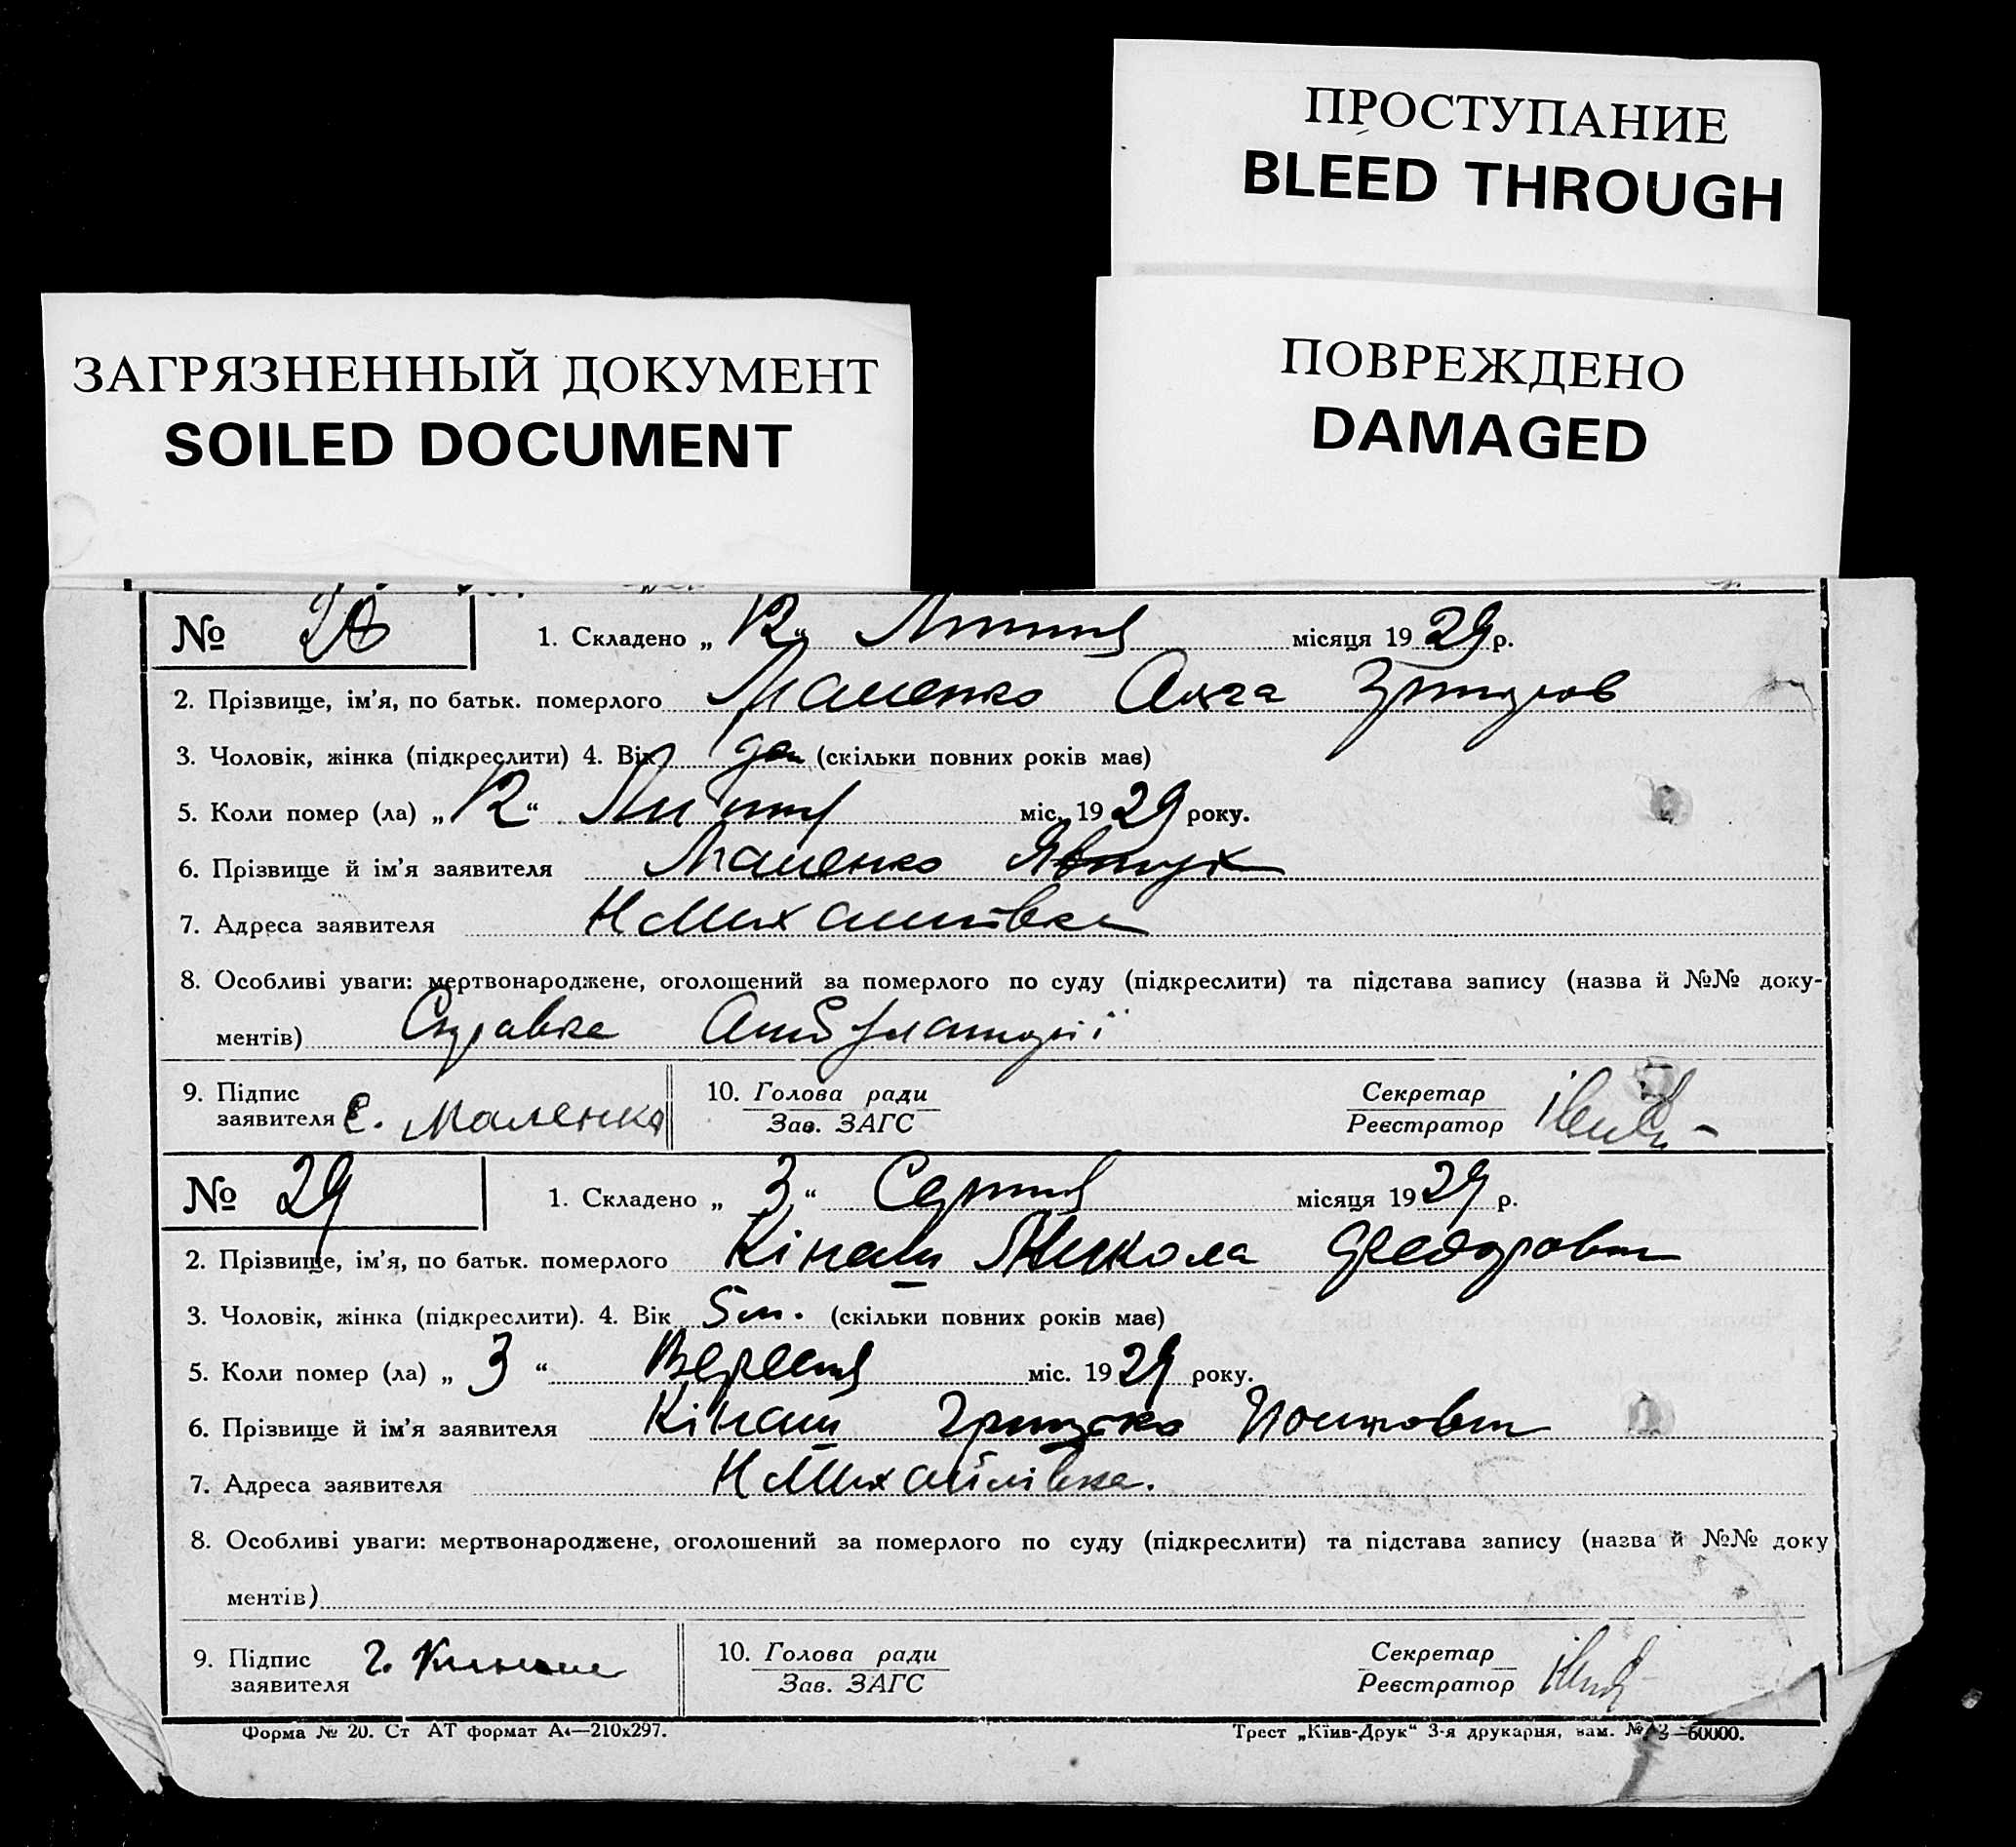 ПРОСТУПАНИЕ
BLEED THROUGH
ЗАГРЯЗНЕННЫЙ ДОКУМЕНТ
SOILED DOCUMENT
ПОВРЕЖДЕНО
DAMAGED
№ 28 1. Складено „ 12 “ Липня місяця 19 29 р.
2. Прізвище, ім'я, по батьк. померлого Маленко
3. Чоловік, жінка (підкреслити) 4. Вік (скільки повних років має)
5. Коли помер (ла) „ 12 “ Липня міс. 19 29 року.
6. Прізвище й ім'я заявителя Маленко Явтух
7. Адреса заявителя Н Михайлівка
8. Особливі уваги: мертвонароджене, оголошений за померлого по суду (підкреслити) та підстава запису (назва й №№ доку-
ментів) Справка Амбулаторії
9. Підпис
заявителя Є. Маленко
10. Голова ради
Зав. ЗАГС
Секретар
Реєстратор
№ 29 1. Складено „ 3 “ Серпня місяця 19 29 р.
2. Прізвище, ім'я, по батьк. померлого Кінаш Микола Федорович
3. Чоловік, жінка (підкреслити). 4. Вік 5 м. (скільки повних років має)
5. Коли помер (ла) „ 3 “ Вересня міс. 19 29 року.
6. Прізвище й ім'я заявителя Кінаш Грицько
7. Адреса заявителя Н Михайлівка.
8. Особливі уваги: мертвонароджене, оголошений за померлого по суду (підкреслити) та підстава запису (назва й №№ доку
ментів)
9. Підпис
заявителя Г. Кинаш
10. Голова ради
Зав. ЗАГС
Секретар
Реєстратор
Форма № 20. Ст АТ формат А4—210х297.
Трест „Київ-Друк“ 3-я друкарня, зам. 60000.